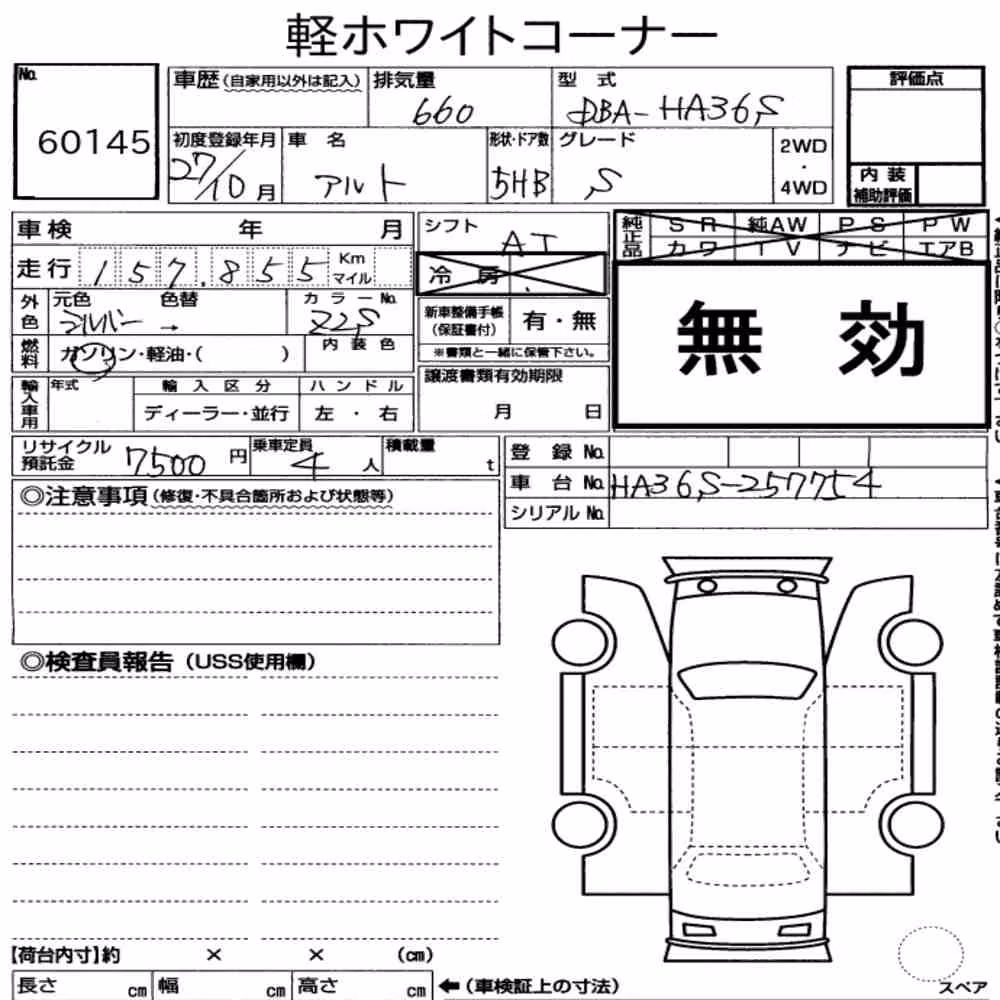 軽ホワイトコーナー
No. 60145
車歴 (自家用以外は記入) 排気量 660 型 式 DBA-HA36S 評価点
初度登録年月 27/10月 車 名 アルト 形状・ドア数 5HB グレード S 2WD・4WD
内装補助評価
車検 年 月 シフト AT
純正品 SR 純AW PS PW
カワ TV ナビ エアB
走行 157,855 Km マイル 冷 房
無 効
外色 元色 シルバー → 色替 カラーNo. Z2S
新車整備手帳 (保証書付) 有・無
※書類と一緒に保管下さい。
燃料 ガソリン・軽油・( ) 内装色
譲渡書類有効期限
月 日
輸入車用 年式 輸入区分 ハンドル
ディーラー・並行 左 ・ 右
リサイクル預託金 7500 円 乗車定員 4 人 積載量 t
登 録 No.
車 台 No. HA36S-257754
シリアル No.
◎注意事項 (修復・不具合箇所および状態等)
◎検査員報告 (USS使用欄)
【荷台内寸】約 × × (cm)
長さ cm 幅 cm 高さ cm ←(車検証上の寸法)
スペア